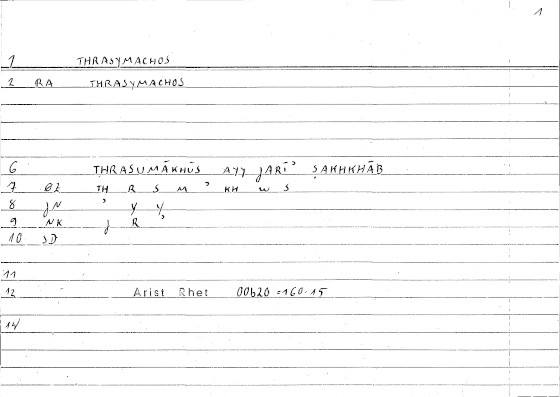 1
1 THRASYMACHOS
2 RA THRASYMACHOS
6 THRASUMĀKHŪS AYY JARĪʾ ṢAKHKHĀB
7 EZ TH R S M ʾ KH W S
8 JN ʾ Y Y
9 NK J R ʾ
10 SD
11
12 Arist Rhet 00b20 =160.15
14